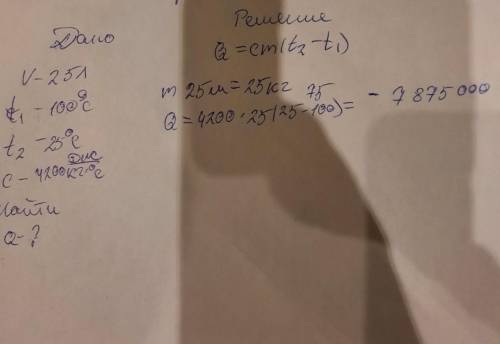 Дано
V - 25 л
t₁ - 100°C
t₂ - 25°C
c - 4200 Дж/кг·°C
Найти
Q - ?
Решение
Q = cm(t₂ - t₁)
m 25 л = 25 кг
75
Q = 4200 · 25(25 - 100) = - 7 875 000